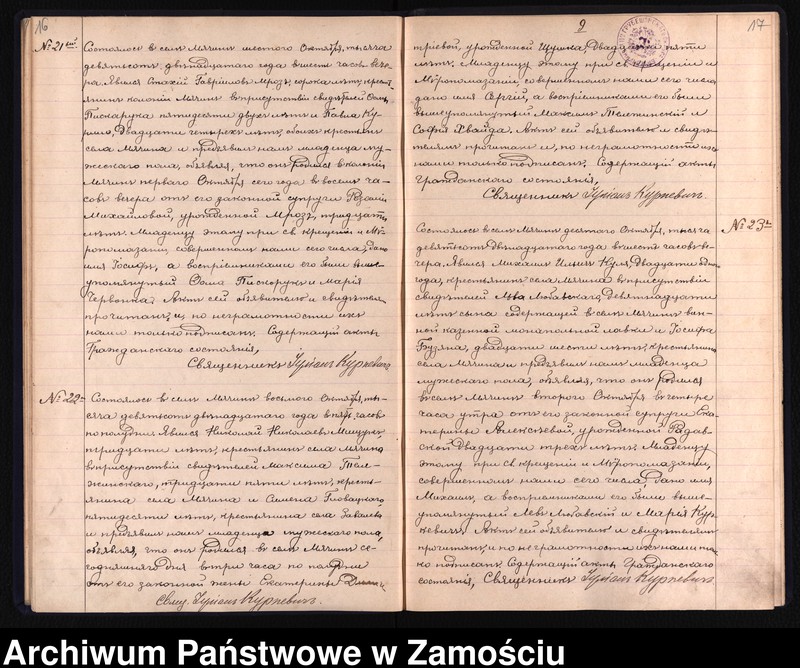 16
№ 21
Состоялось в селѣ Мячинѣ шестого Октября, тысяча
девятьсотъ двѣнадцатаго года въ шесть часовъ вече-
ра. Явился Гавріиловъ Мрозъ, сорока лѣтъ, крест-
янинъ колоніи Мячинъ въ присутствіи свидѣтелей Осипа
Пискорука пятидесяти двухъ лѣтъ и Павла Ку-
двадцати четырехъ лѣтъ, обоихъ крестьянъ
села Мячина и предъявилъ намъ младенца му-
жескаго пола, объявляя, что онъ родился въ колоніи
Мячинъ перваго Октября сего года въ восемь ча-
совъ вечера отъ его законной супруги Розаліи
Михайловой, урожденной Мрозъ, тридцати
лѣтъ. Младенцу этому при св. крещеніи и Мѵ-
ропомазаніи, совершенномъ нами сего числа, дано
имя Іосифъ, а воспріемниками его были выше-
упомянутый Осипъ Пискорукъ и Марія
Червонка. Актъ сей объявителю и свидѣтелямъ
прочитанъ, и, по неграмотности ихъ
нами только подписанъ. Содержащій акты
Гражданскаго состоянія,
Священникъ Іуліанъ Курпевичъ
№ 22
Состоялось въ селѣ Мячинѣ восьмого Октября, ты-
сяча девятьсотъ двѣнадцатаго года въ пять часовъ
по полудни. Явился Николай Николаевъ
тридцати лѣтъ, крестьянинъ села Мячина
въ присутствіи свидѣтелей Максима Теле-
жинскаго, тридцати пяти лѣтъ, кресть-
янина села Мячина и Семена Гловацкаго,
пятидесяти лѣтъ, крестьянина села
и предъявилъ намъ младенца мужескаго пола,
объявляя, что онъ родился въ селѣ Мячинѣ се-
годняшняго дня въ три часа по полудни
отъ его законной жены Екатерины
Свящ. Іуліанъ Курпевичъ.
9
17
тріевой, урожденной двадцати пяти
лѣтъ. Младенцу этому при св. крещеніи и
Мѵропомазаніи, совершенномъ нами сего числа
дано имя Сергій, а воспріемниками его были
вышеупомянутый Максимъ Тележинскій и
Софія Хвайда. Актъ сей объявителю и свидѣ-
телямъ прочитанъ и, по неграмотности ихъ
нами только подписанъ. Содержащій акты
Гражданскаго состоянія,
Священникъ Іуліанъ Курпевичъ
№ 23
Состоялось въ селѣ Мячинѣ десятаго Октября, тысяча
девятьсотъ двѣнадцатаго года въ шесть часовъ ве-
чера. Явился Михаилъ Ильичъ Куль, двадцати
года, крестьянинъ села Мячина въ присутствіи
свидѣтелей Льва Любавскаго, девятнадцати
лѣтъ сына содержащей въ селѣ Мячинѣ вин-
ной казенной монопольной лавки и Іосифа
двадцати шести лѣтъ, крестьянина
села Мячина и предъявилъ намъ младенца
мужескаго пола, объявляя, что онъ родился
въ селѣ Мячинѣ второго Октября въ четыре
часа утра отъ его законной супруги Ека-
терины Алексѣевой, урожденной Радав-
ской двадцати трехъ лѣтъ. Младенцу
этому при св. крещеніи и Мѵропомазаніи,
совершенномъ нами сего числа, дано имя
Михаилъ, а воспріемниками его были выше-
упомянутый Левъ Любавскій и Марія Кур-
кевичъ. Актъ сей объявителю и свидѣтелямъ
прочитанъ, и по неграмотности ихъ нами толь-
ко подписанъ. Содержащій акты Гражданскаго
состоянія, Священникъ Іуліанъ Курпевичъ
Archiwum Państwowe w Zamościu